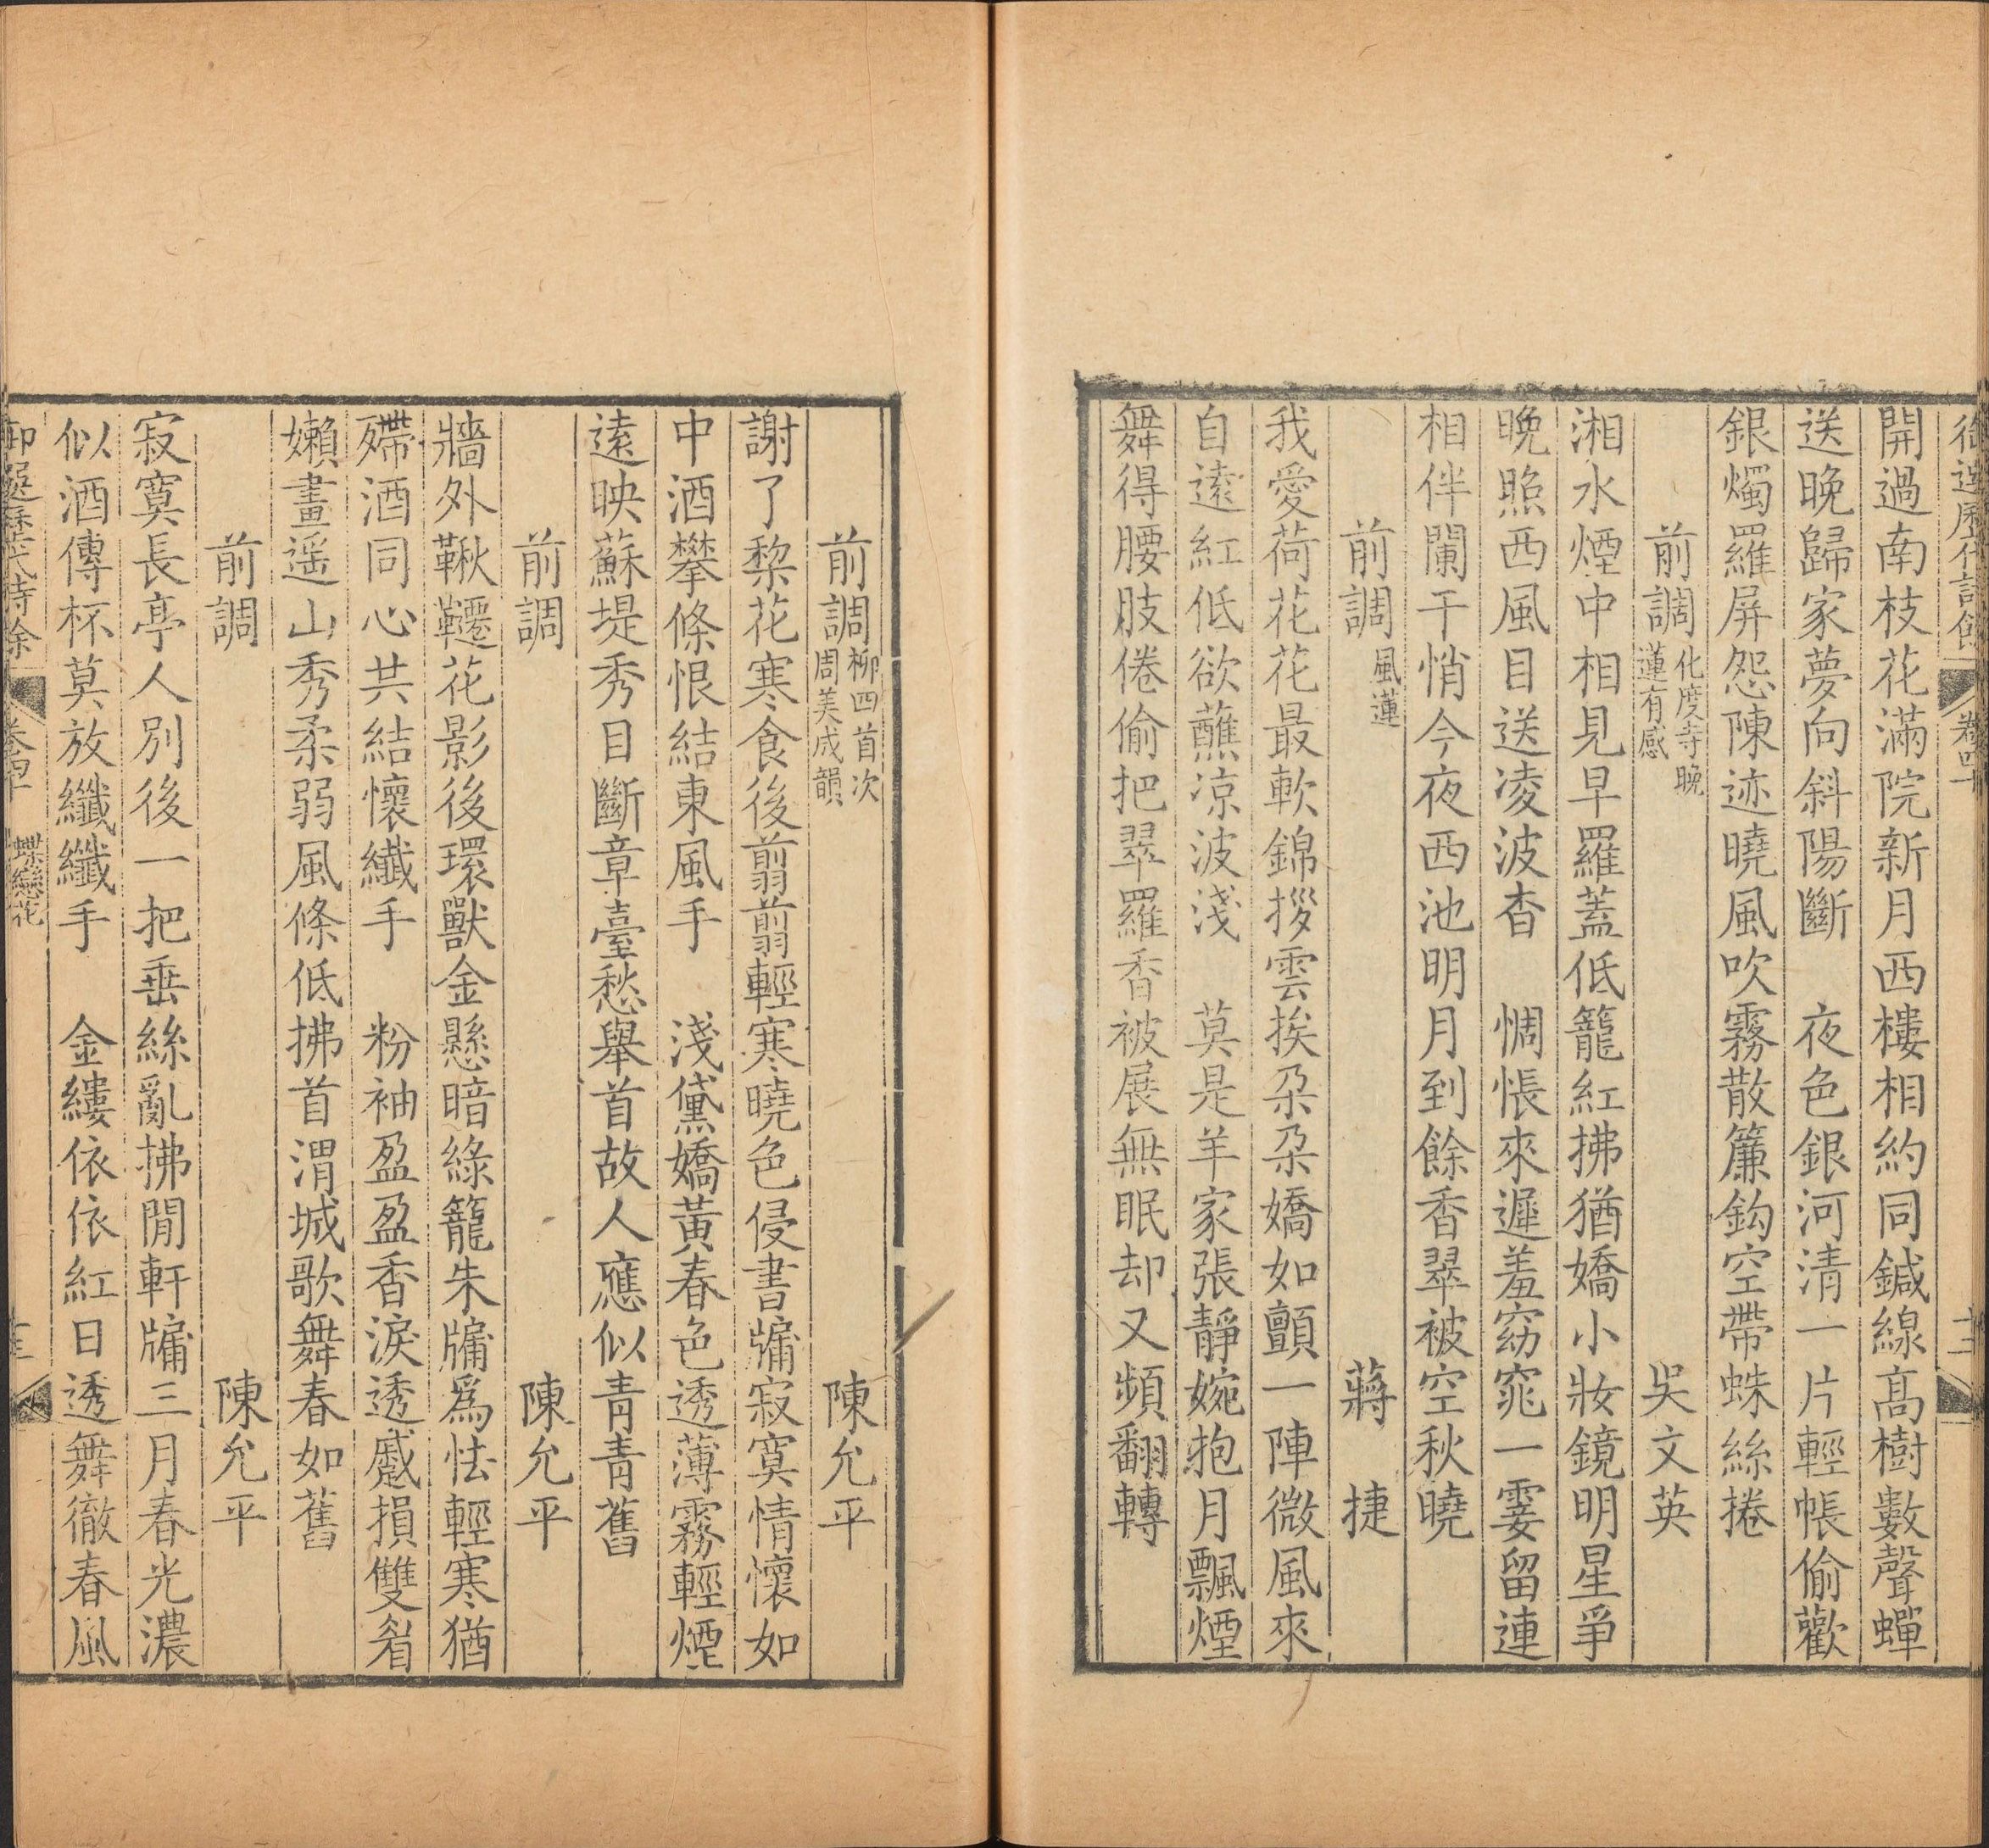 御選歷代詩餘 卷四十 十二
開過南枝花滿院新月西樓相約同鍼線髙樹數聲蟬
送晚歸家夢向斜陽斷　夜色銀河清一片輕帳偷歡
銀燭羅屏怨陳迹曉風吹霧散簾鈎空帶蛛絲捲
前調 化度寺晚蓮有感 吳文英
湘水煙中相見早羅蓋低籠紅拂猶嬌小妝鏡明星爭
晚照西風目送凌波杳　惆悵來遲羞窈窕一霎留連
相伴闌干悄今夜西池明月到餘香翠被空秋曉
前調 風蓮 蔣捷
我愛荷花花最軟錦拶雲挨朵朵嬌如顫一陣微風來
自遠紅低欲蘸涼波淺　莫是羊家張靜婉抱月飄煙
舞得腰肢倦偷把翠羅香被展無眠却又頻翻轉
前調 柳四首次周美成韻 陳允平
謝了棃花寒食後翦翦輕寒曉色侵書牖寂寞情懷如
中酒攀條恨結東風手　淺黛嬌黃春色透薄霧輕煙
遠映蘇堤秀目斷章臺愁舉首故人應似青青舊
前調 陳允平
牆外鞦韆花影後環獸金懸暗綠籠朱牖爲怯輕寒猶
殢酒同心共結懷纖手　粉袖盈盈香淚透蹙損雙眉
嬾畫遥山秀柔弱風條低拂首渭城歌舞春如舊
前調 陳允平
寂寞長亭人別後一把垂絲亂拂閒軒牖三月春光濃
似酒傳杯莫放纖纖手　金縷依依紅日透舞徹春風
御選歷代詩餘 卷四十 蝶戀花 十三